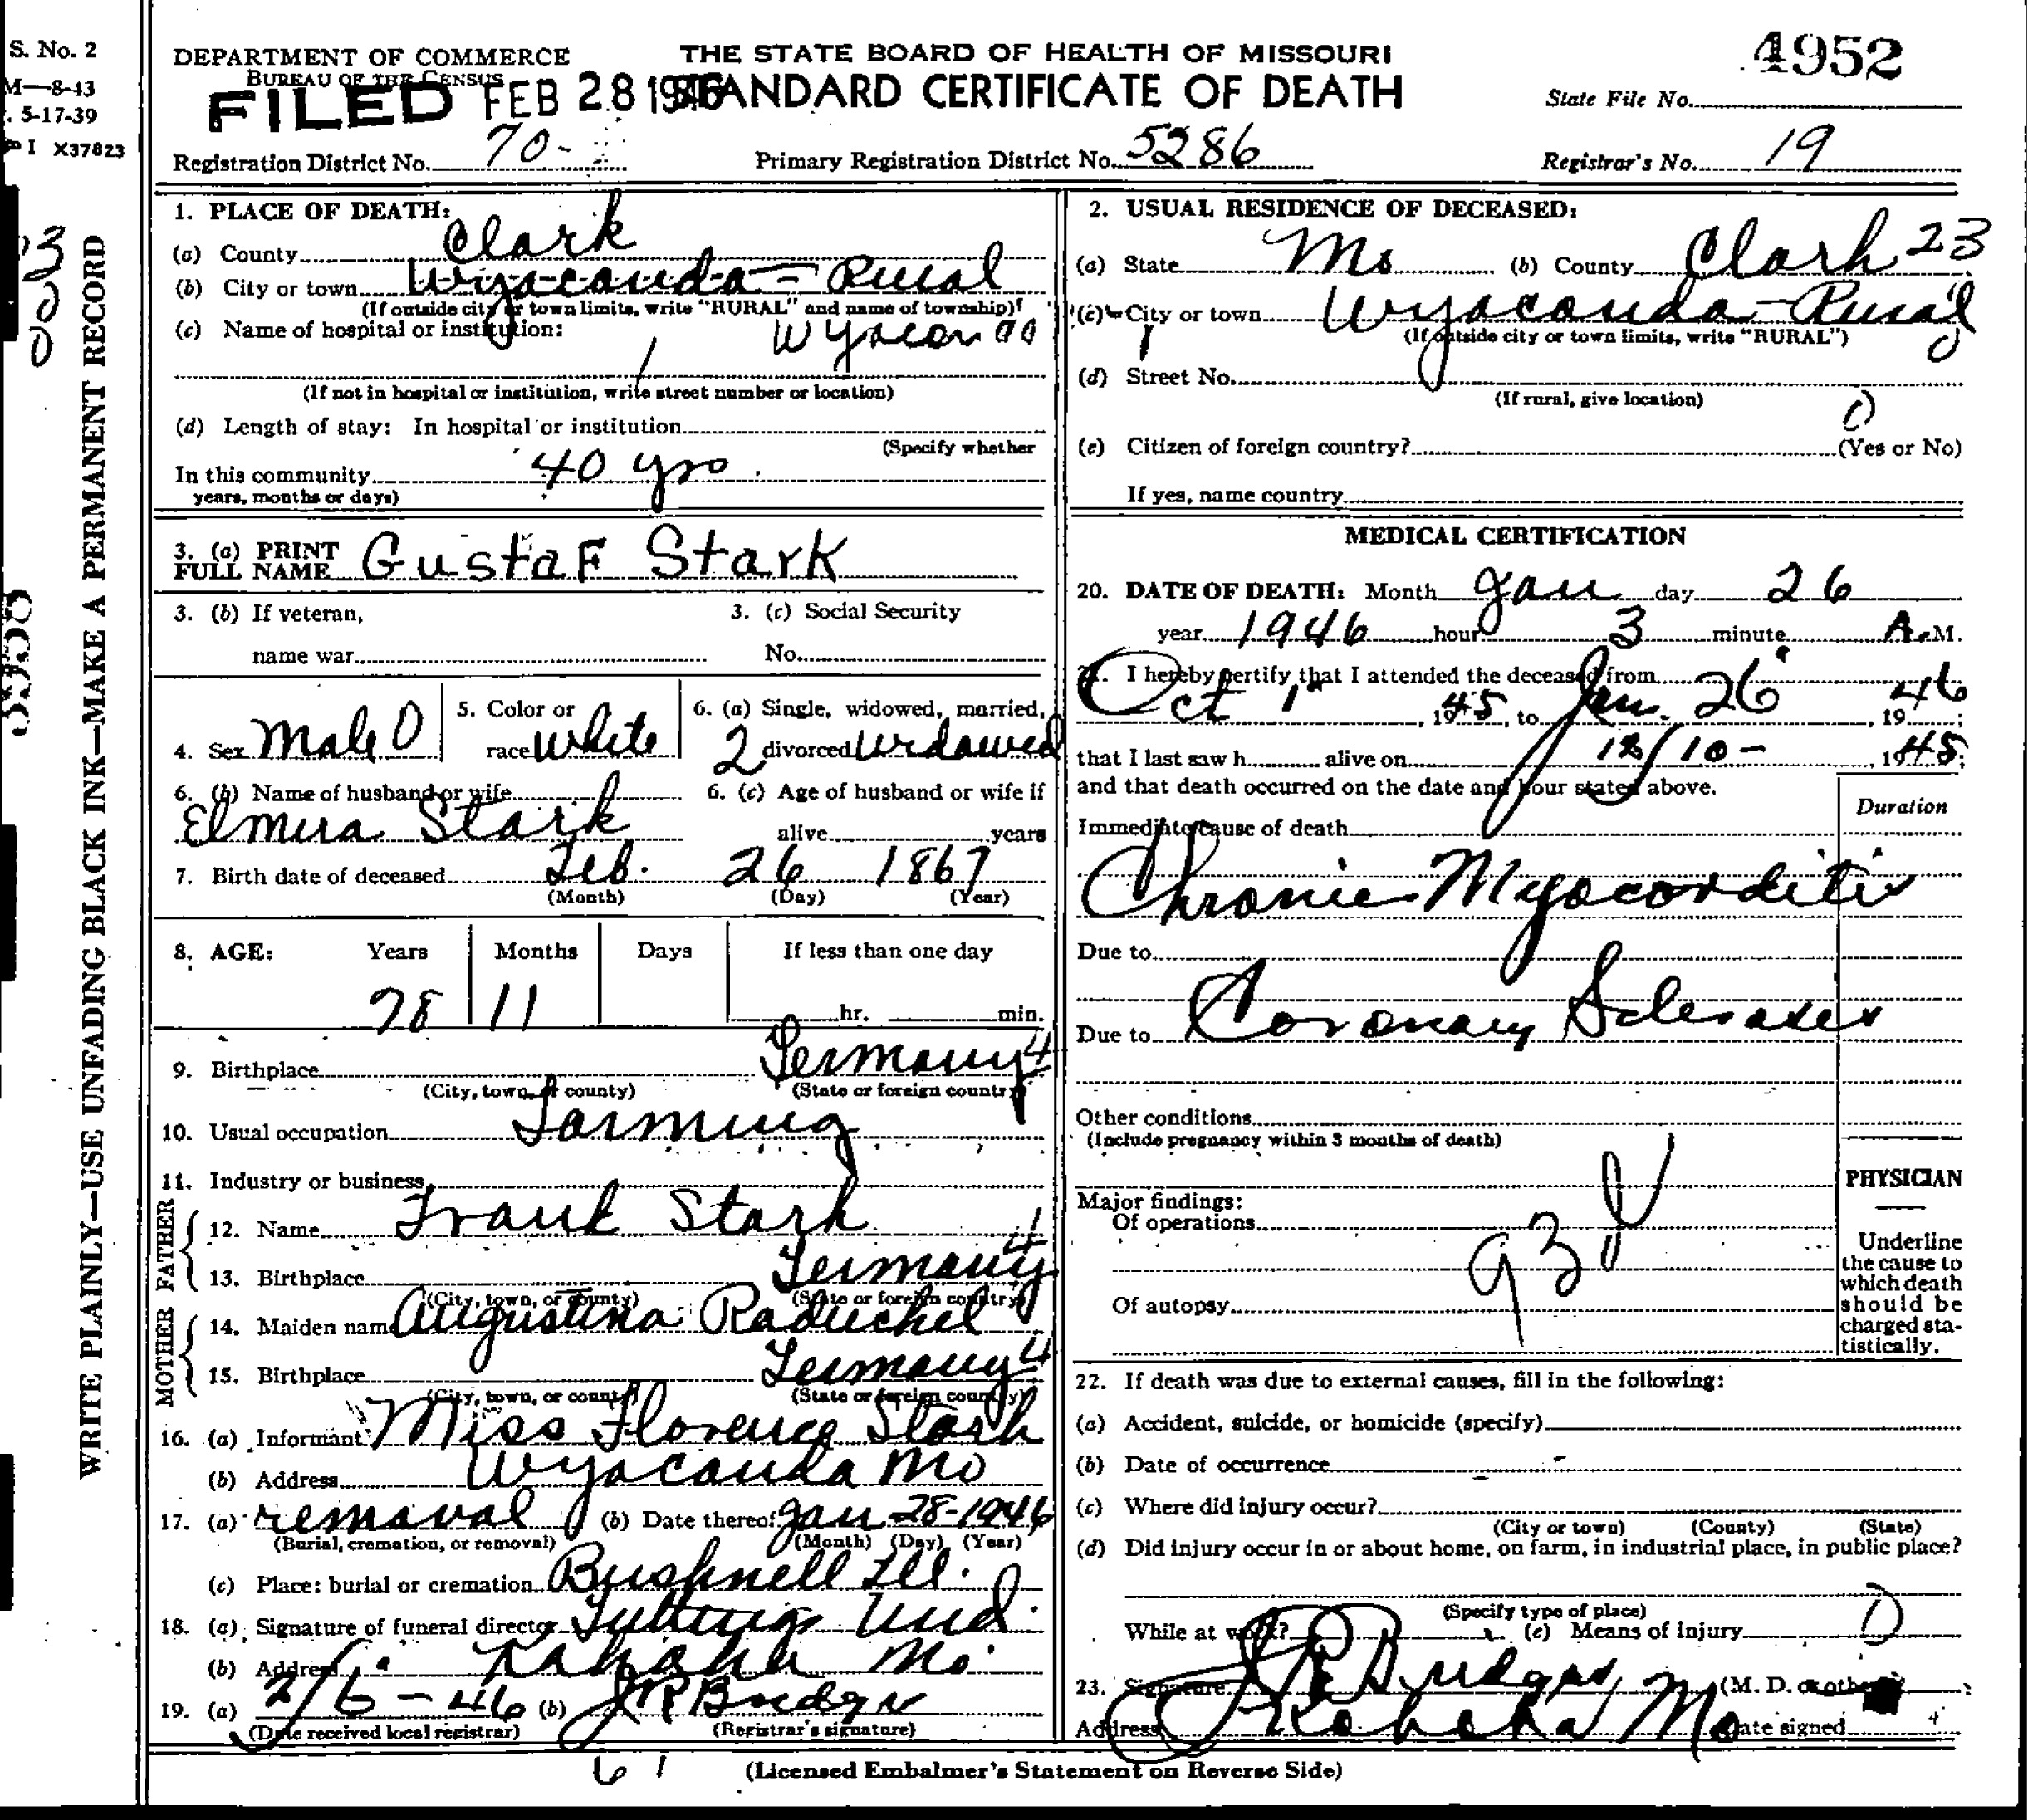 S. No. 2
M—8-43
. 5-17-39
I X37823
WRITE PLAINLY—USE UNFADING BLACK INK—MAKE A PERMANENT RECORD
DEPARTMENT OF COMMERCE
BUREAU OF THE CENSUS
THE STATE BOARD OF HEALTH OF MISSOURI
STANDARD CERTIFICATE OF DEATH
FILED FEB 28 1946
4952
State File No.
Registration District No. 70-
Primary Registration District No. 5286
Registrar's No. 19
1. PLACE OF DEATH:
(a) County Clark
(b) City or town Wyaconda - Rural
(If outside city or town limits, write "RURAL" and name of township)
(c) Name of hospital or institution:
(If not in hospital or institution, write street number or location)
(d) Length of stay: In hospital or institution
(Specify whether
In this community 40 yrs.
years, months or days)
3. (a) PRINT
FULL NAME Gustaf Stark
3. (b) If veteran,
name war
3. (c) Social Security
No.
4. Sex Male 0
5. Color or
race White
6. (a) Single, widowed, married,
2 divorced Widowed
6. (b) Name of husband or wife
Elmira Stark
6. (c) Age of husband or wife if
alive years
7. Birth date of deceased Feb. 26 1867
(Month) (Day) (Year)
8. AGE: Years Months Days If less than one day
78 11 hr. min.
9. Birthplace Germany 4
(City, town, or county) (State or foreign country)
10. Usual occupation Farming
11. Industry or business
FATHER
12. Name Frank Stark
13. Birthplace Germany 4
(City, town, or county) (State or foreign country)
MOTHER
14. Maiden name Augustina Raduchel
15. Birthplace Germany 4
(City, town, or county) (State or foreign country)
16. (a) Informant Miss Florence Stark
(b) Address Wyaconda Mo
17. (a) removal (b) Date thereof Jan 28-1946
(Burial, cremation, or removal) (Month) (Day) (Year)
(c) Place: burial or cremation Bushnell Ill.
18. (a) Signature of funeral director Und.
(b) Address Kahoka Mo.
19. (a) 2/6-46 (b) J R Bridges
(Date received local registrar) (Registrar's signature)
61
2. USUAL RESIDENCE OF DECEASED:
(a) State Mo (b) County Clark 23
(c) City or town Wyaconda - Rural
(If outside city or town limits, write "RURAL")
(d) Street No.
(If rural, give location)
(e) Citizen of foreign country? (Yes or No)
If yes, name country
MEDICAL CERTIFICATION
20. DATE OF DEATH: Month Jan day 26
year 1946 hour 3 minute A.M.
21. I hereby certify that I attended the deceased from
Oct 1", 1945, to Jan. 26, 1946;
that I last saw h alive on 12/10-, 1945;
and that death occurred on the date and hour stated above.
Duration
Immediate cause of death
Chronic Myocarditis
Due to
Due to Coronary Sclerosis
Other conditions
(Include pregnancy within 3 months of death)
Major findings:
Of operations
93d
Of autopsy
PHYSICIAN
Underline
the cause to
which death
should be
charged sta-
tistically.
22. If death was due to external causes, fill in the following:
(a) Accident, suicide, or homicide (specify)
(b) Date of occurrence
(c) Where did injury occur?
(City or town) (County) (State)
(d) Did injury occur in or about home, on farm, in industrial place, in public place?
(Specify type of place)
While at work? (e) Means of injury
23. Signature J R Bridges (M. D. or other)
Address Kahoka Mo Date signed
(Licensed Embalmer's Statement on Reverse Side)